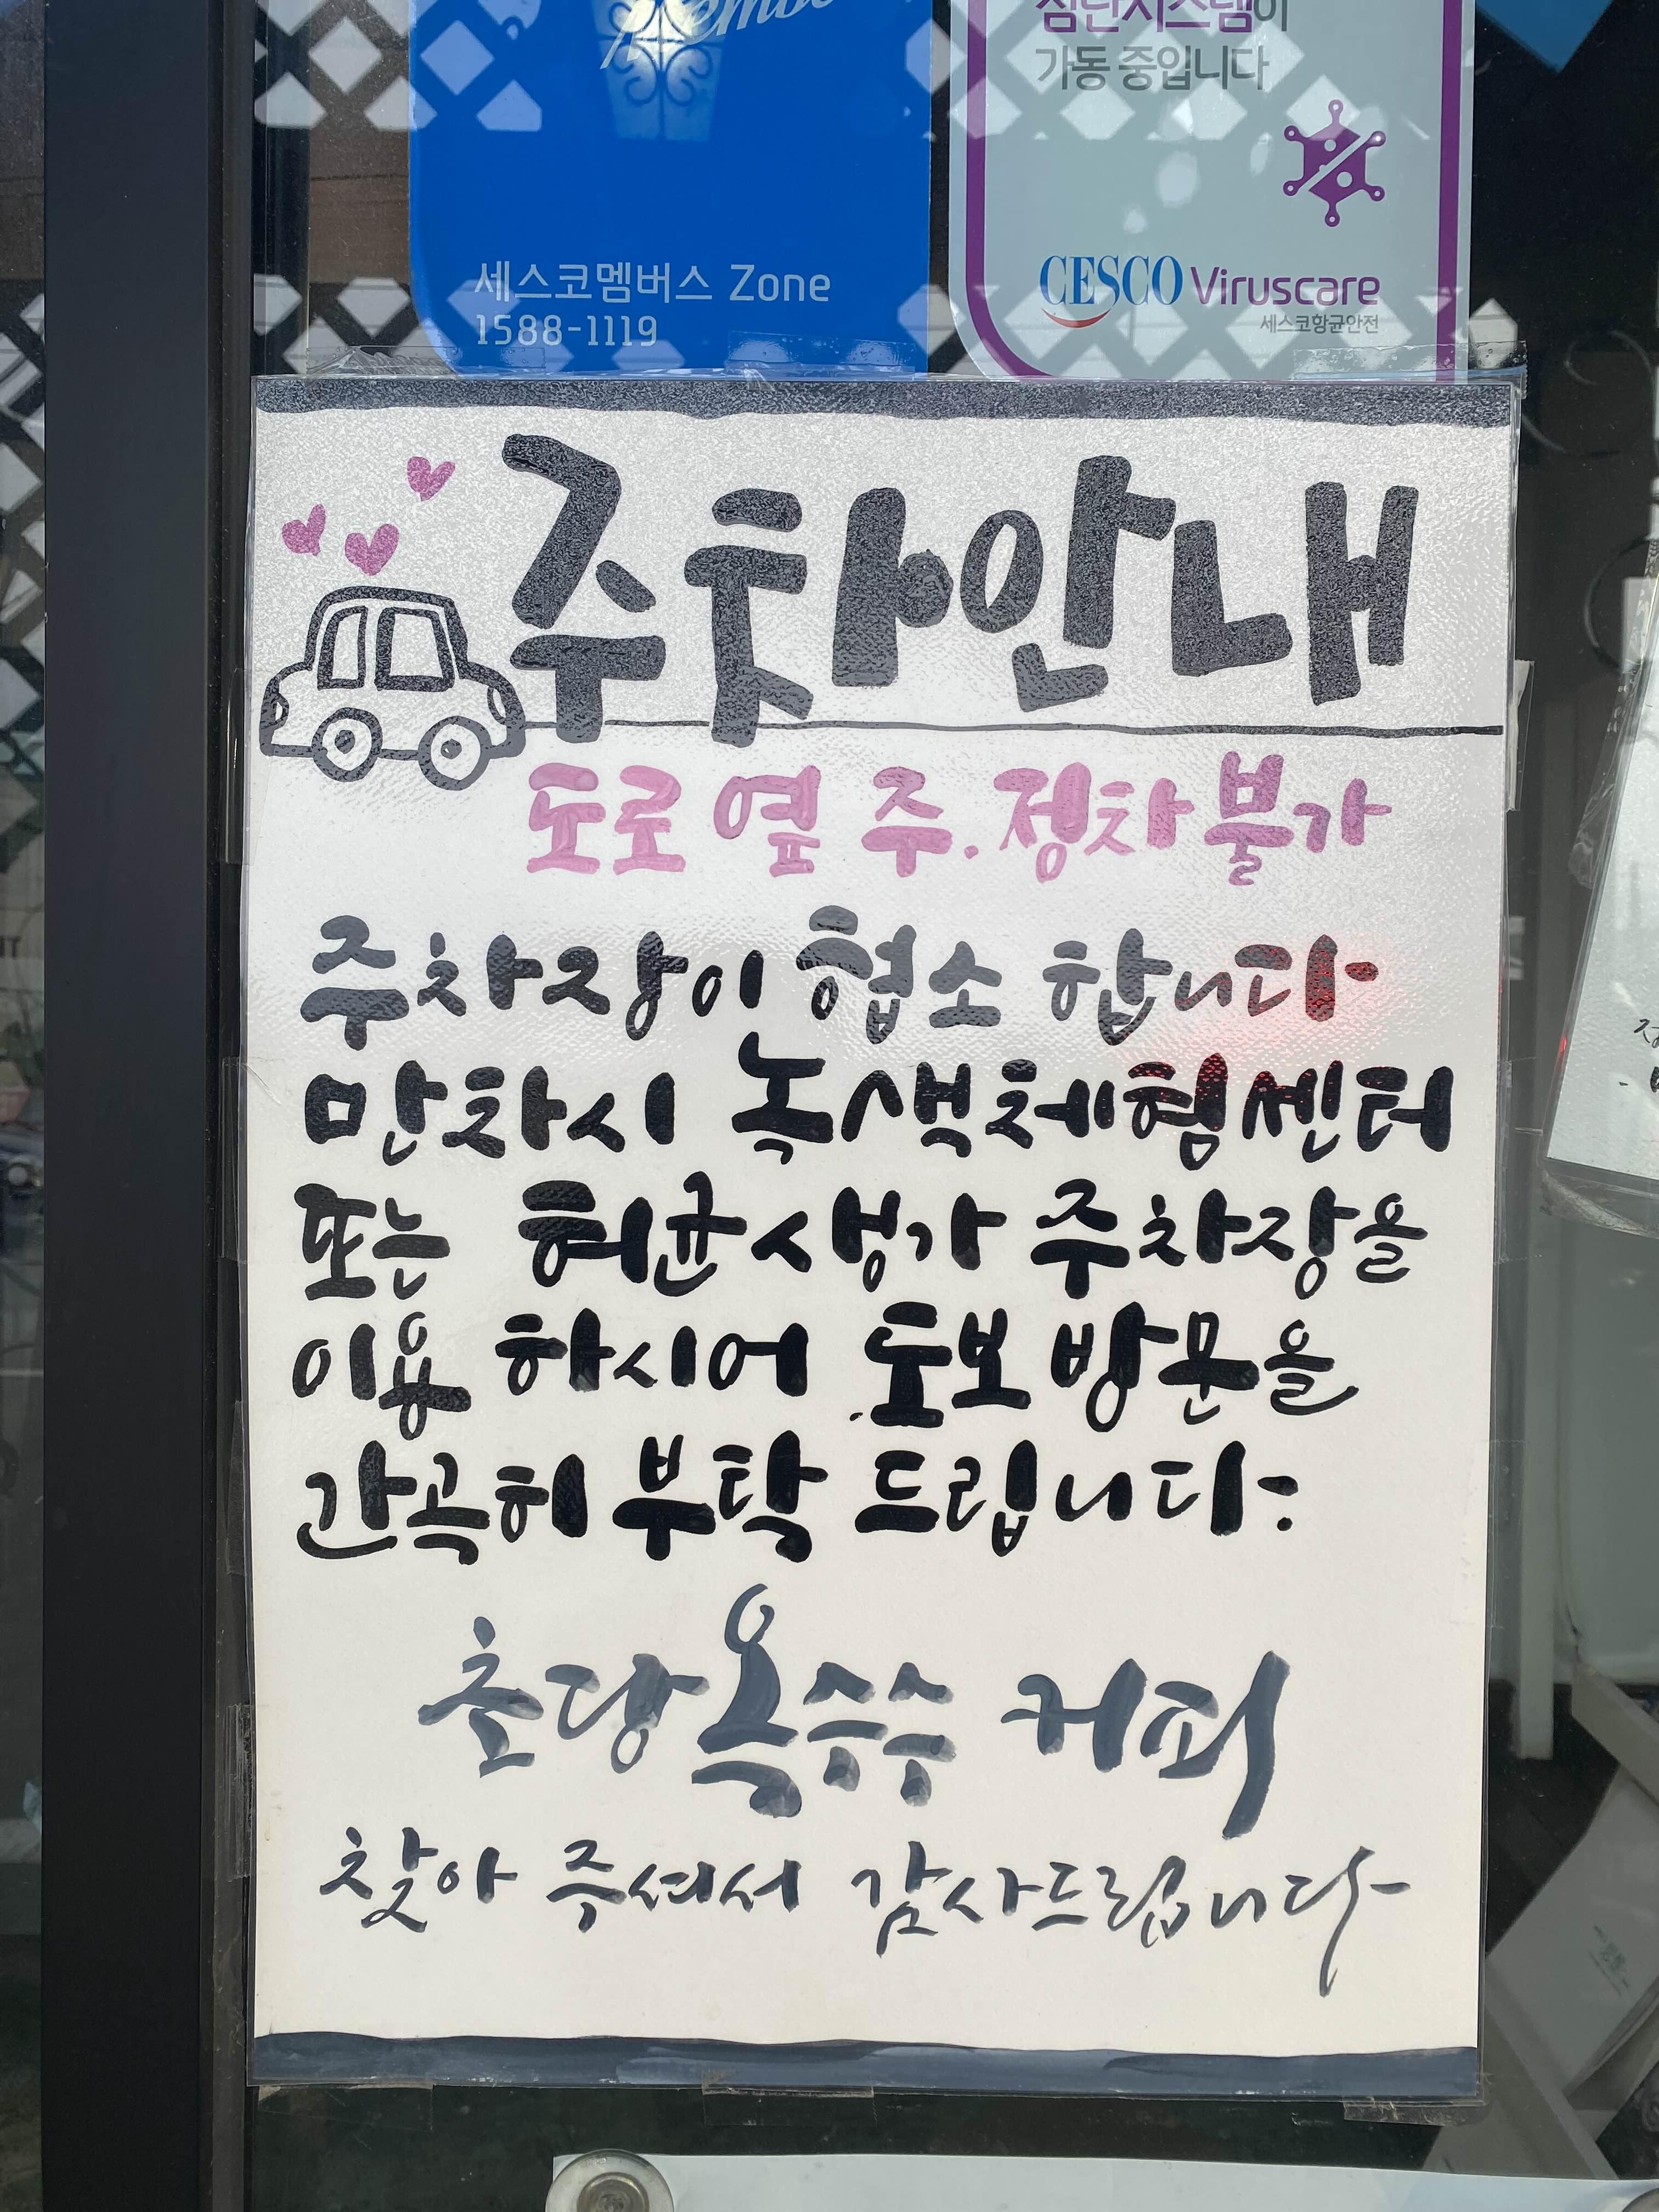 가동 중입니다
세스코멤버스 Zone
1588-1119
CESCO Viruscare
세스코항균안전
주차안내
도로 옆 주.정차 불가
주차장이 협소 합니다
만차시 녹색체험센터
또는 허균생가 주차장을
이용 하시어 도보 방문을
간곡히 부탁 드립니다:
초당옥수수 커피
찾아 주셔서 감사드립니다